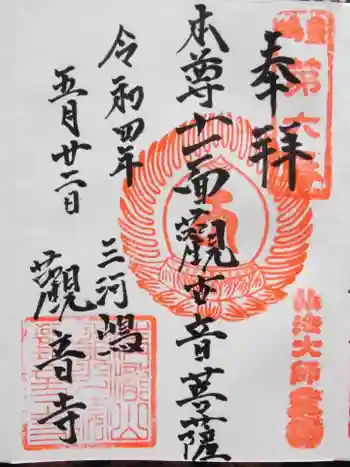 奉拝
第六番
本尊十一面觀世音菩薩
令和四年
五月廿二日
三河嶋
觀音寺
弘法大師霊場